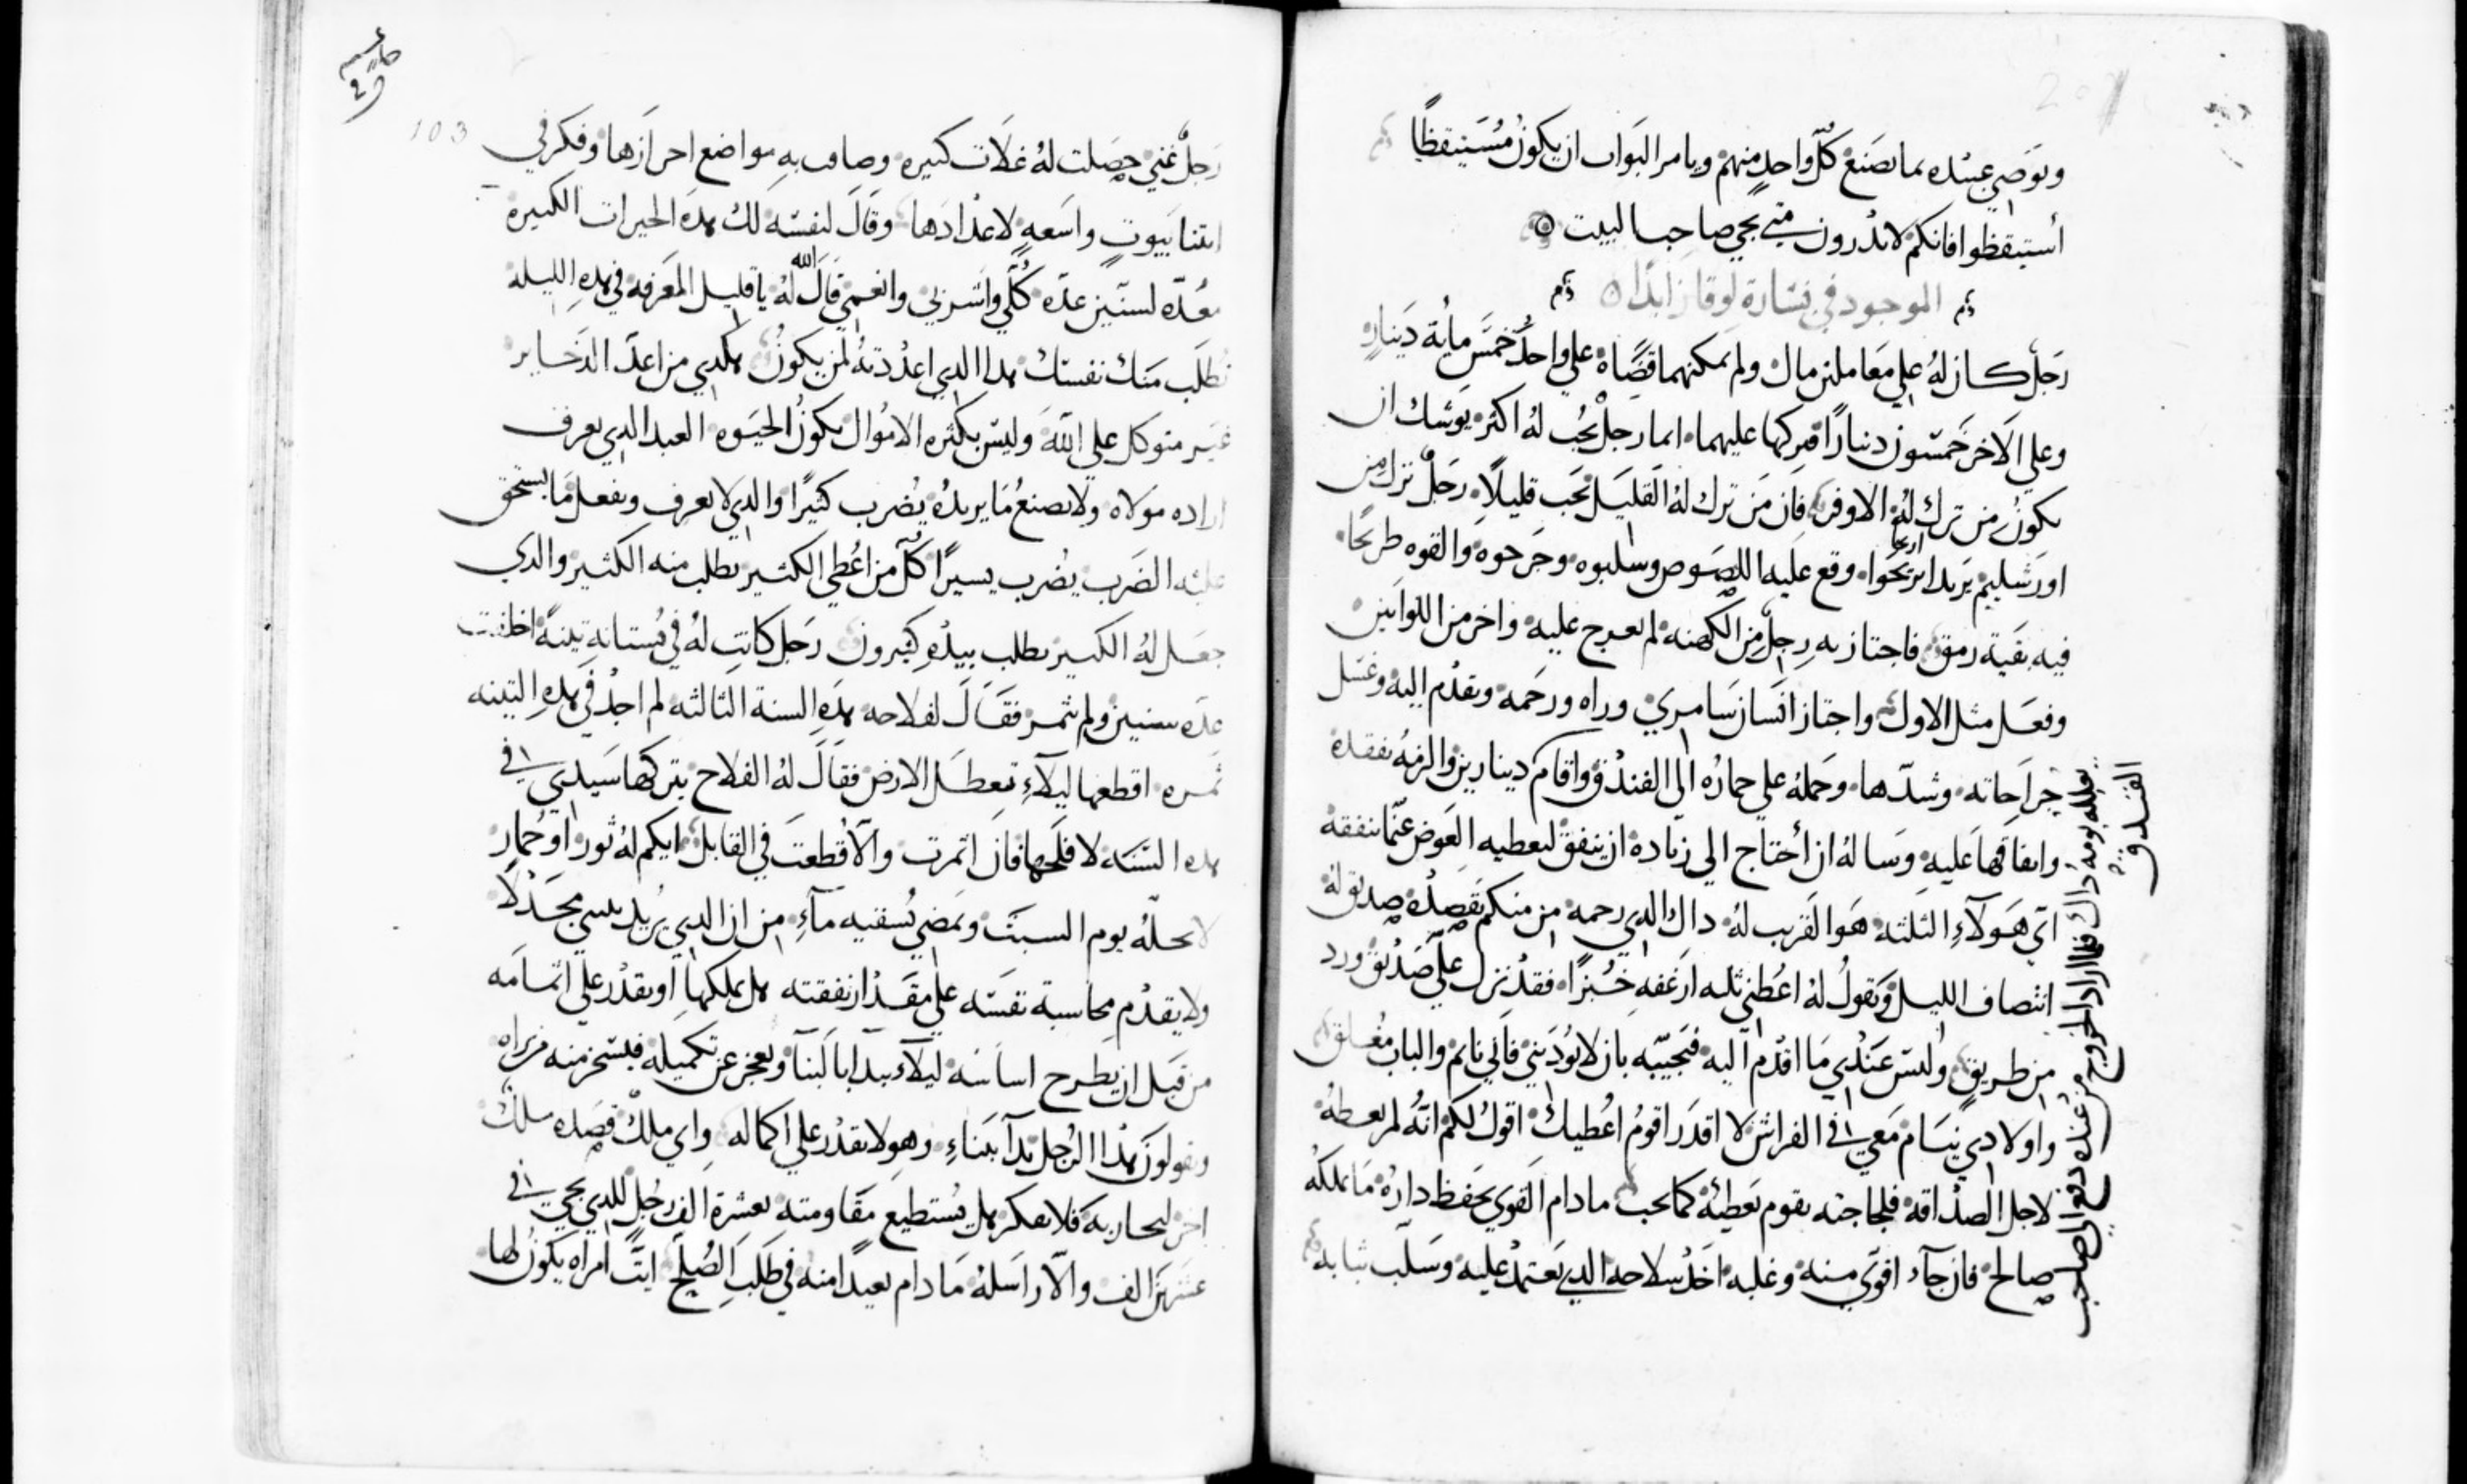 ويوصي عبيده بما يصنع كل واحد منهم ويامر البواب ان يكون مستيقظا
استيقظوا فانكم لا تدرون متي يجي صاحب البيت
الموجود في بشارة لوقا زايدا
رجل كان له علي معاملين مال ولم يمكنهما قضاه علي واحد خمس ماية دينار
وعلي الاخر خمسون دينارا فتركها عليهما ايما رجل يحب له اكثر يوشك ان
يكون من ترك له الاوفر فان من ترك له القليل يحب قليلا رجل ترك من
اورشليم يريد اريحا وقع عليه اللصوص وسلبوه وجرحوه والقوه طريحا
فيه بقية رمق فاجتاز به رجل من الكهنه لم يعرج عليه واخر من اللوانين
وفعل مثل الاول واجتاز انسان سامري وراه ورحمه وتقدم اليه وغسل
جراحاته وشدها وحمله علي حماره الي الفندق واقام دينارين والزمه تفقده
وانفاقها عليه وساله ان احتاج الي زيادة ان ينفق ليعطيه العوض عما ينفقه
اي هولاء الثلثه هو القريب له داك الدي رحمه من منكم يقصده صديق له
انتصاف الليل ويقول له اعطني ثلثه ارغفه خبزا فقد نزل علي صديق ورد
من طريق وليس عندي ما اقدم اليه فيجيبه بان لا تودني فاني نايم والباب مغلق
واولادي نيام معي في الفراش لا اقدر اقوم اعطيك اقول لكم انه لم يعطه
لاجل الصداقه فلجاجته يقوم يعطيه كما يحب ما دام القوي يحفظ داره ما يملكه
صالح فان جاء اقوي منه وغلبه اخد سلاحه الدي يعتمد عليه وسلب ثيابه
يومه داك فلما اراد الخروج من عنده دفع الي صاحب
الفندق
103
رجل غني حصلت له غلات كثيره وضاقت به مواضع احرازها وفكر في
ابتنا بيوت واسعه لاعدادها وقال لنفسه لك هده الخيرات الكبيرة
معده لسنين عده كلي واشربي وانعمي قال الله له يا قليل المعرفه في هده الليله
تطلب منك نفسك هدا الدي اعددته لمن يكون هكدي من اعد الدخاير
غير متوكل علي الله وليس بكثره الاموال تكون الحيوه العبد الدي يعرف
اراده مولاه ولا يصنع ما يريده يضرب كثيرا والدي لا يعرف ويفعل ما يستحق
عليه الضرب يضرب يسيرا كل من اعطي الكثير يطلب منه الكثير والدي
جعل له الكثير يطلب بيده كثيرون رجل كانت له في بستانه تينة اخلفت
عده سنين ولم تثمر فقال لفلاحه هده السنة الثالثه لم اجد في هده التينه
ثمره اقطعها ليلاء تعطل الارض فقال له الفلاح يتركها سيدي في
هده السنه لافلحها فان اثمرت والا قطعت في القابل ايكم له ثور او حمار
لا يحله يوم السبت ويمضي يسقيه ماء من ان الدي يريد يبني مجدلا
ولا يقدم محاسبة نفسه علي مقدار نفقته هل يملكها او يقدر علي اتمامه
من قبل ان يطرح اساسه ليلاء يبدا بالبنآ ويعجز عن تكميله فيسخر منه من راه
ويقولون هدا الرجل بدآ ببناء وهو لا يقدر علي اكماله واي ملك قصده ملك
اخر ليحاربه فلا يفكر هل يستطيع مقاومته بعشرة الف رجل للدي يجي في
عشرين الف والا راسله ما دام بعيدا منه في طلب الصلح ايت امراه يكون لها